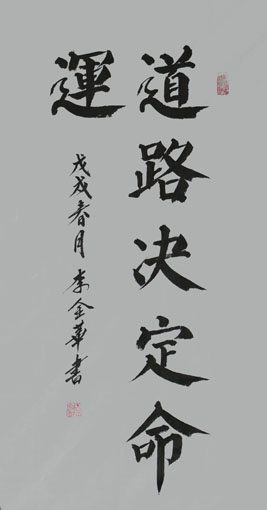 道路决定命
運
戊戌春月 李金華書